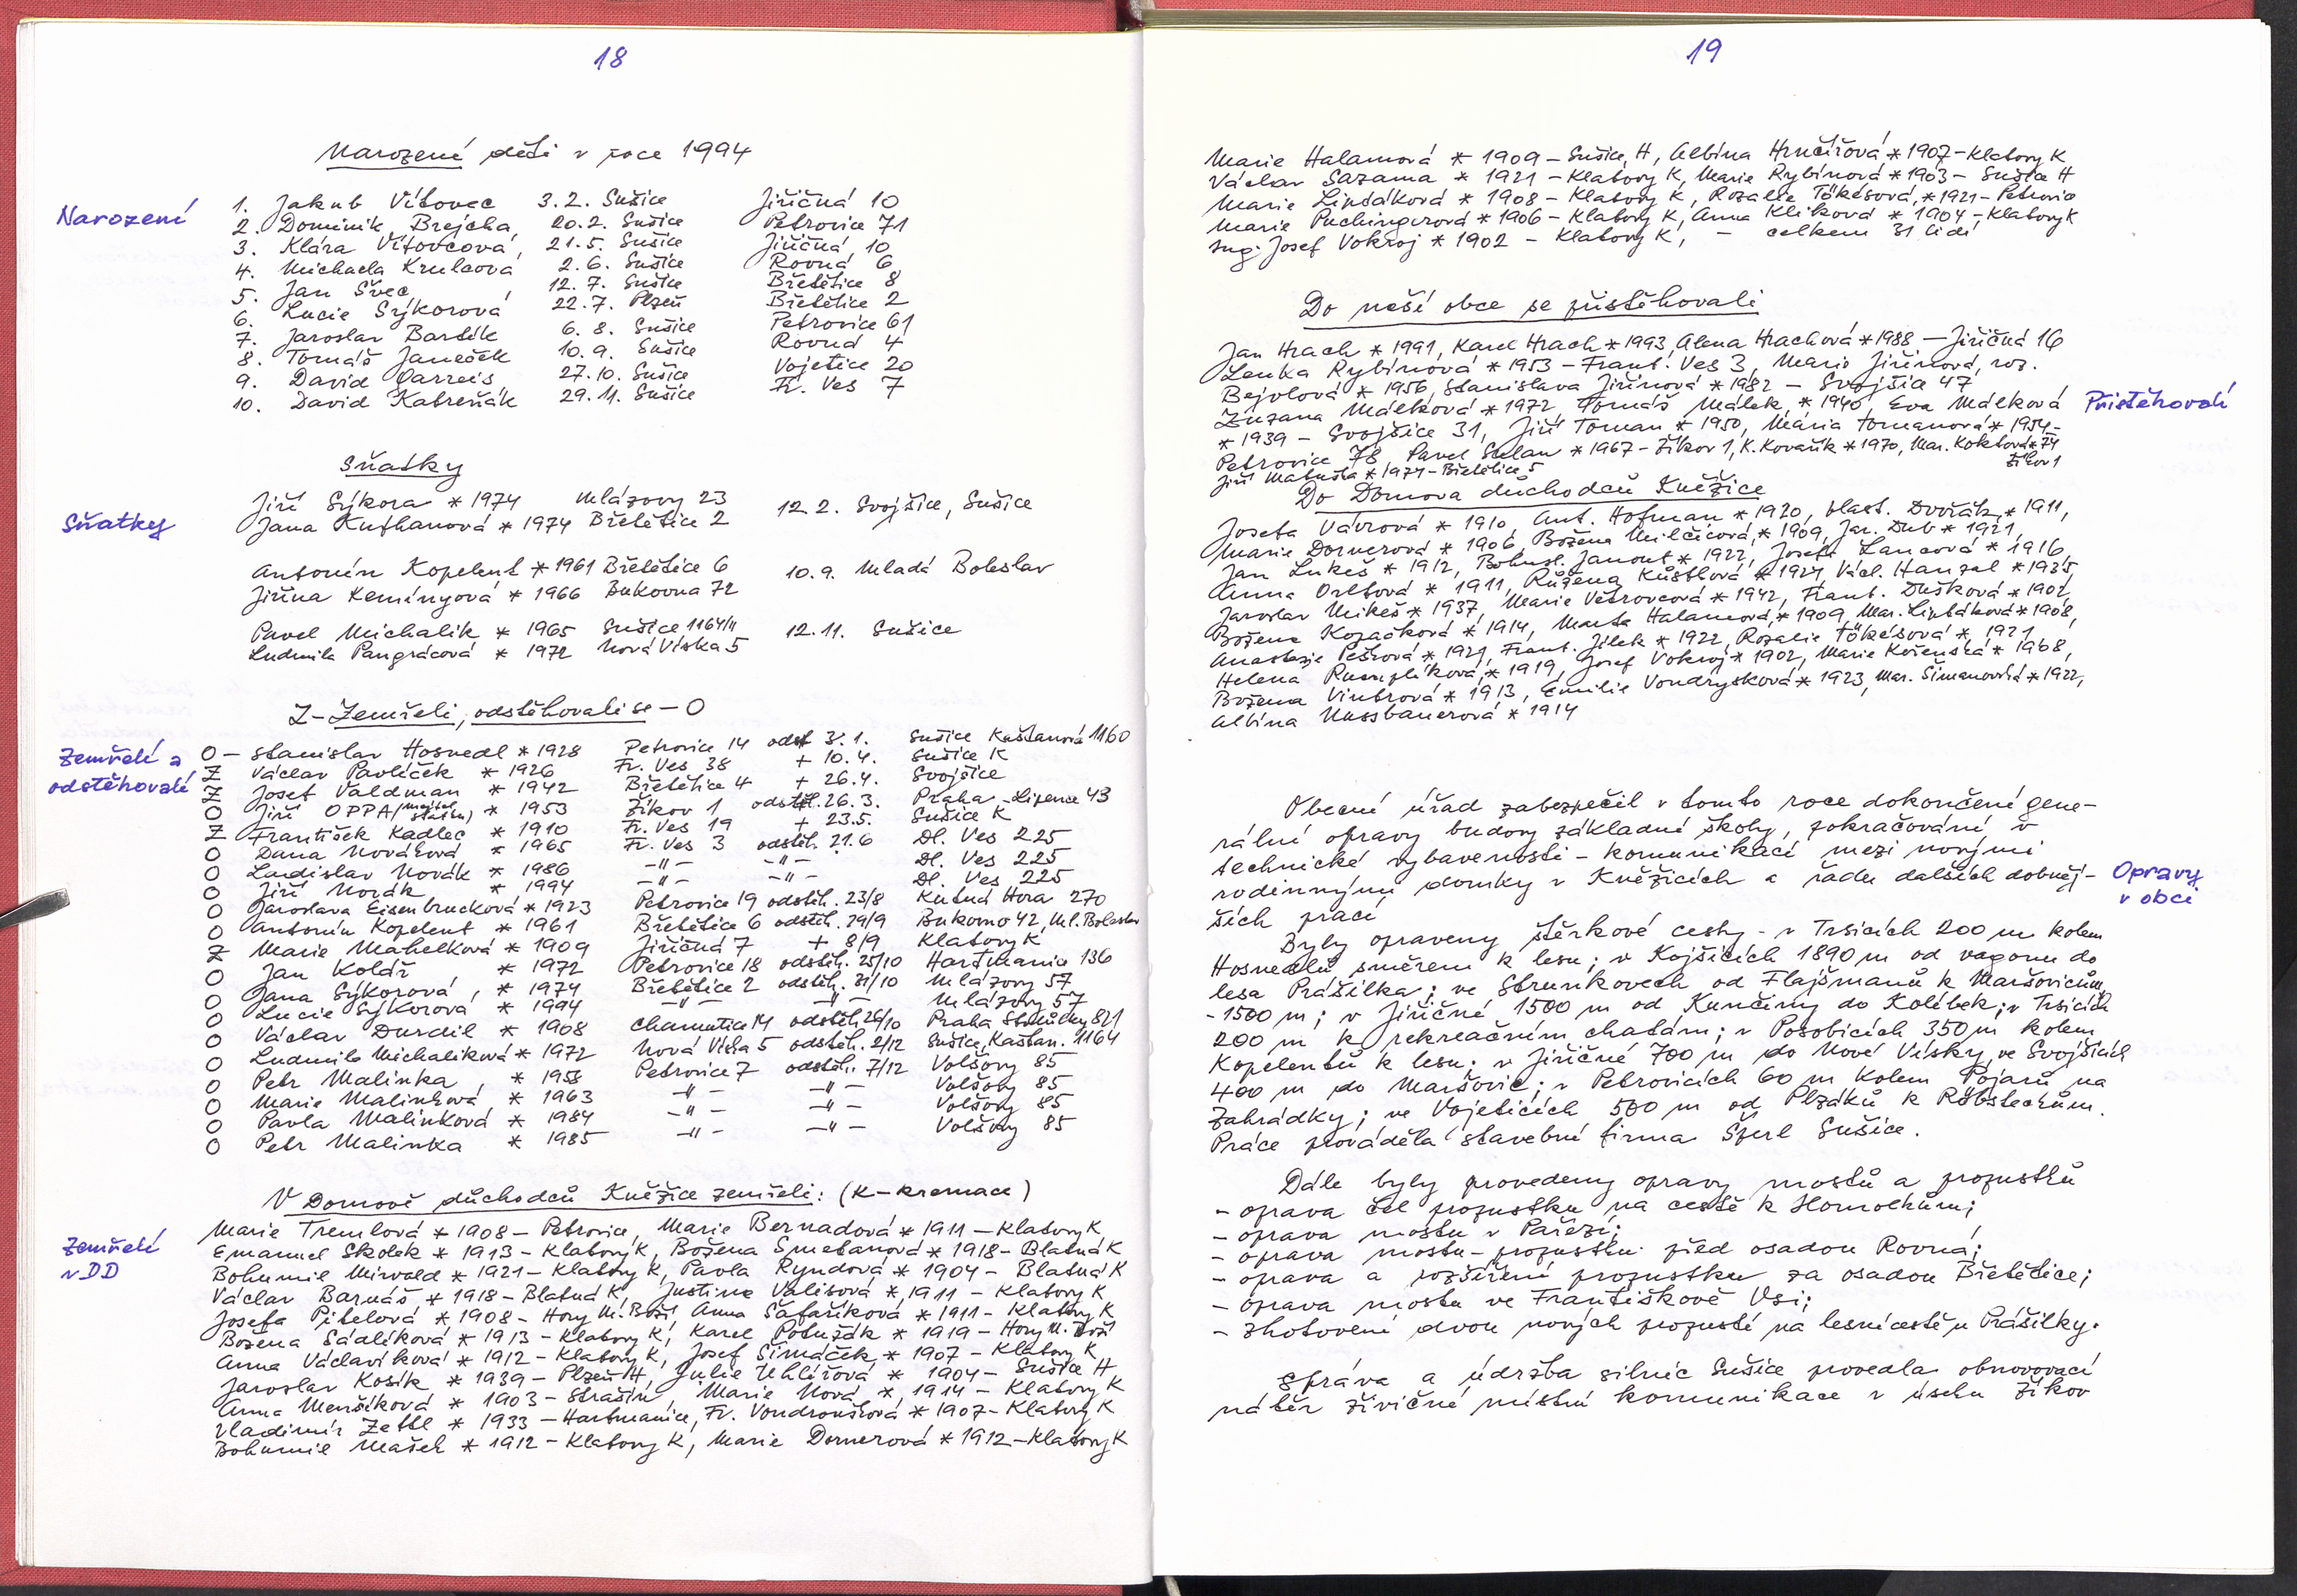 18
Narozené děti v roce 1994
Narození
1. Jakub Vítovec 3.2. Sušice Jiřičná 10
2. Dominik Brejcha, 20.2. Sušice Petrovice 71
3. Klára Vítovcová, 21.5. Sušice Jiřičná 10
4. Michaela Krulcová 2.6. Sušice Rovná 6
5. Jan Švec, 12.7. Sušice Břetětice 8
6. Lucie Sýkorová 22.7. Plzeň Břetětice 2
7. Jaroslav Bartík 6.8. Sušice Petrovice 61
8. Tomáš Janeček 10.9. Sušice Rovná 4
9. David 27.10. Sušice Vojetice 20
10. David Katreňák 29.11. Sušice Fr. Ves 7
Sňatky
Sňatky
Jiří Sýkora * 1974 Mlázovy 23 12.2. Svojšice, Sušice
Jana Kuthanová * 1974 Břetětice 2
Antonín Kopelent * 1961 Břetětice 6 10.9. Mladá Boleslav
Jiřina Keményová * 1966 Bukovna 72
Pavel Michalik * 1965 Sušice 1164/II 12.11. Sušice
Ludmila Pangrácová * 1972 Nová Víska 5
Z-Zemřeli, odstěhovali se - O
Zemřelí a
odstěhovalí
O - Stanislav Hosnedl * 1928 Petrovice 14 odst 3.1. Sušice Kaštanová 1160
Z Václav Pavlíček * 1926 Fr. Ves 38 + 10.4. Sušice K
Z Josef Valdman * 1942 Břetětice 4 + 26.4. Svojšice
O Jiří OPPA (majitel statku) * 1953 Žikov 1 odstěh. 26.3. Praha - Lipence 43
Z František Kadlec * 1910 Fr. Ves 19 + 23.5. Sušice K
O Dana Nováková * 1965 Fr. Ves 3 odstěh. 21.6 Dl. Ves 225
O Ladislav Novák * 1986 -"- -"- Dl. Ves 225
O Jiří Novák * 1994 -"- -"- Dl. Ves 225
O Jaroslava Eisenbrucková * 1923 Petrovice 19 odstěh. 23/8 Kutná Hora 270
O Antonín Kopelent * 1961 Břetětice 6 odstěh. 19/9 Bukovno 42, Ml. Boleslav
Z Marie Mahelková * 1909 Jiřičná 7 + 8/9 Klatovy K
O Jan Kolář, * 1972 Petrovice 18 odstěh. 25/10 Hartmanice 136
O Jana Sýkorová, * 1974 Břetětice 2 odstěh. 31/10 Mlázovy 57
O Lucie Sýkorová * 1994 -"- -"- Mlázovy 57
O Václav Durdil * 1908 Chamutice 14 odstěh 26/10 Praha Stodůlky 821
O Ludmila Michaliková * 1972 Nová Víska 5 odstěh. 2/12 Sušice, Kaštan. 1164
O Petr Malinka, * 1958 Petrovice 7 odstěh. 7/12 Volšovy 85
O Marie Malinková * 1963 -"- -"- Volšovy 85
O Pavla Malinková * 1984 -"- -"- Volšovy 85
O Petr Malinka * 1985 -"- -"- Volšovy 85
V Domově důchodců Kněžice zemřeli: (K-kremace)
Zemřelí
v DD
Marie Tremlová * 1908 - Petrovice, Marie Bernadová * 1911 - Klatovy K,
Emanuel Skolek * 1913 - Klatovy K, Božena Smetanová * 1918 - Blatná K
Bohumil Mirvald * 1921 - Klatovy K, Pavla Ryndová * 1904 - Blatná K
Václav Barnáš * 1918 - Blatná K, Justina Valisová *, 1911 - Klatovy K,
Josefa Pitelová * 1908 - Hory M. Bož, Anna Šafaříková * 1911 - Klatovy K
Božena Sádlíková * 1913 - Klatovy K, Karel Potužák * 1919 - Hory M. Bož
Anna Václavíková * 1912 - Klatovy K, Josef Šimáček * 1907 - Klatovy K
Jaroslav Kosík * 1939 - Plzeň H, Julie Uhlířová * 1904 - Sušice H
Anna Menšíková * 1903 - Strašín, Marie Nová *, 1914 - Klatovy K
Vladimír Zettl * 1933 - Hartmanice, Fr. Vondroušková * 1907 - Klatovy K
Bohumil Mašek * 1912 - Klatovy K, Marie Dornerová * 1912 - Klatovy K
19
Marie Halamová * 1909 - Sušice, H, Albína Hrnčířová * 1907 - Klatovy K
Václav Sazama * 1921 - Klatovy K, Marie Rybínová * 1903 - Sušice H
Marie Lintáková * 1908 - Klatovy K, Rozalie Tökésová, * 1921 - Petrovice
Marie Puchingerová * 1906 - Klatovy K, Anna Klíková * 1904 - Klatovy K
Ing. Josef Vokroj * 1902 - Klatovy K, - celkem 31 lidí
Do naší obce se přistěhovali
Jan Hrach * 1991, Karel Hrach * 1993, Alena Hrachová * 1988 - Jiřičná 16
Lenka Rybínová * 1953 - Frant. Ves 3, Marie Jiřinová, roz.
Bejvlová * 1956, Stanislava Jiřinová * 1982 - Svojšice 47
Zuzana Málková * 1972, Tomáš Málek, * 1940, Eva Málková
Přistěhovalí
* 1939 - Svojšice 31, Jiří Toman * 1950, Mária Tomanová * 1954 -
Petrovice 78, Pavel * 1967 - Žikov 1, K. Kovařík * 1970, Mar. Koktová * 74
Žikov 1
Jiří Matuška * 1974 - Břetětice 5
Do Domova důchodců Kněžice
Josefa Vávrová * 1910, Ant. Hofman * 1920, Vlast. Dvořák, * 1911,
Marie Dornerová * 1906, Božena Milčicová, * 1909, Jar. Dub * 1921,
Jan Lukeš * 1912, Bohusl. Janout * 1922, Josefa Lancová * 1916,
Anna Ortová * 1911, Růžena Küstlová * 1924, Václ. Hanzal * 1935,
Jaroslav Mikeš * 1937, Marie Větrovcová * 1942, Frant. Dušková * 1902,
Božena Kozáčková * 1914, Marta Halamová, * 1909, Mar. Lintáková * 1908,
Anastazie Pešková * 1921, Frant. Jílek * 1922, Rozalie Tökésová * 1921
Helena Rumplíková, * 1919, Josef Vokroj * 1902, Marie Koženská * 1908,
Božena Vintrová * 1913, Emilie Vondrysková * 1923, Mar. Šimanovská * 1922,
Albína Nussbauerová * 1914
Obecní úřad zabezpečil v tomto roce dokončení gene-
rální opravy budovy základní školy, pokračování v
technické vybavenosti - komunikací mezi novými
rodinnými domky v Kněžicích a řadu dalších dobněj-
Opravy
v obci
ších prací
Byly opraveny štěrkové cesty - v Trsicích 200 m kolem
Hosnedlů směrem k lesu; v Kojšicích 1890 m od vagonu do
lesa Prášilka; ve Strunkovech od Flajšmanů k Maršovicům,
- 1500 m; v Jiřičné 1500 m od Kunčiny do Kolíbek; v Trsicích
200 m k rekreačním chatám; v Posobicích 350 m kolem
Kopelentů k lesu; v Jiřičné 700 m do Nové Vísky, ve Svojšicích
400 m do Maršovic; v Petrovicích 60 m kolem Pojarů na
Zahrádky; ve Vojeticích 500 m od Plzáků k Röbsteckům.
Práce prováděla stavební firma Šperl Sušice.
Dále byly provedeny opravy mostů a propustků
- oprava čel propustku na cestě k Homolkům;
- oprava mostu v Pařezí;
- oprava mostu - propustku před osadou Rovná;
- oprava a rozšíření propustku za osadou Břetětice;
- oprava mostu ve Františkově Vsi;
- zhotovení dvou nových propustí na lesní cestě u Prášilky.
Správa a údržba silnic Sušice provedla obnovovací
nátěr živičné místní komunikace v úseku Žikov